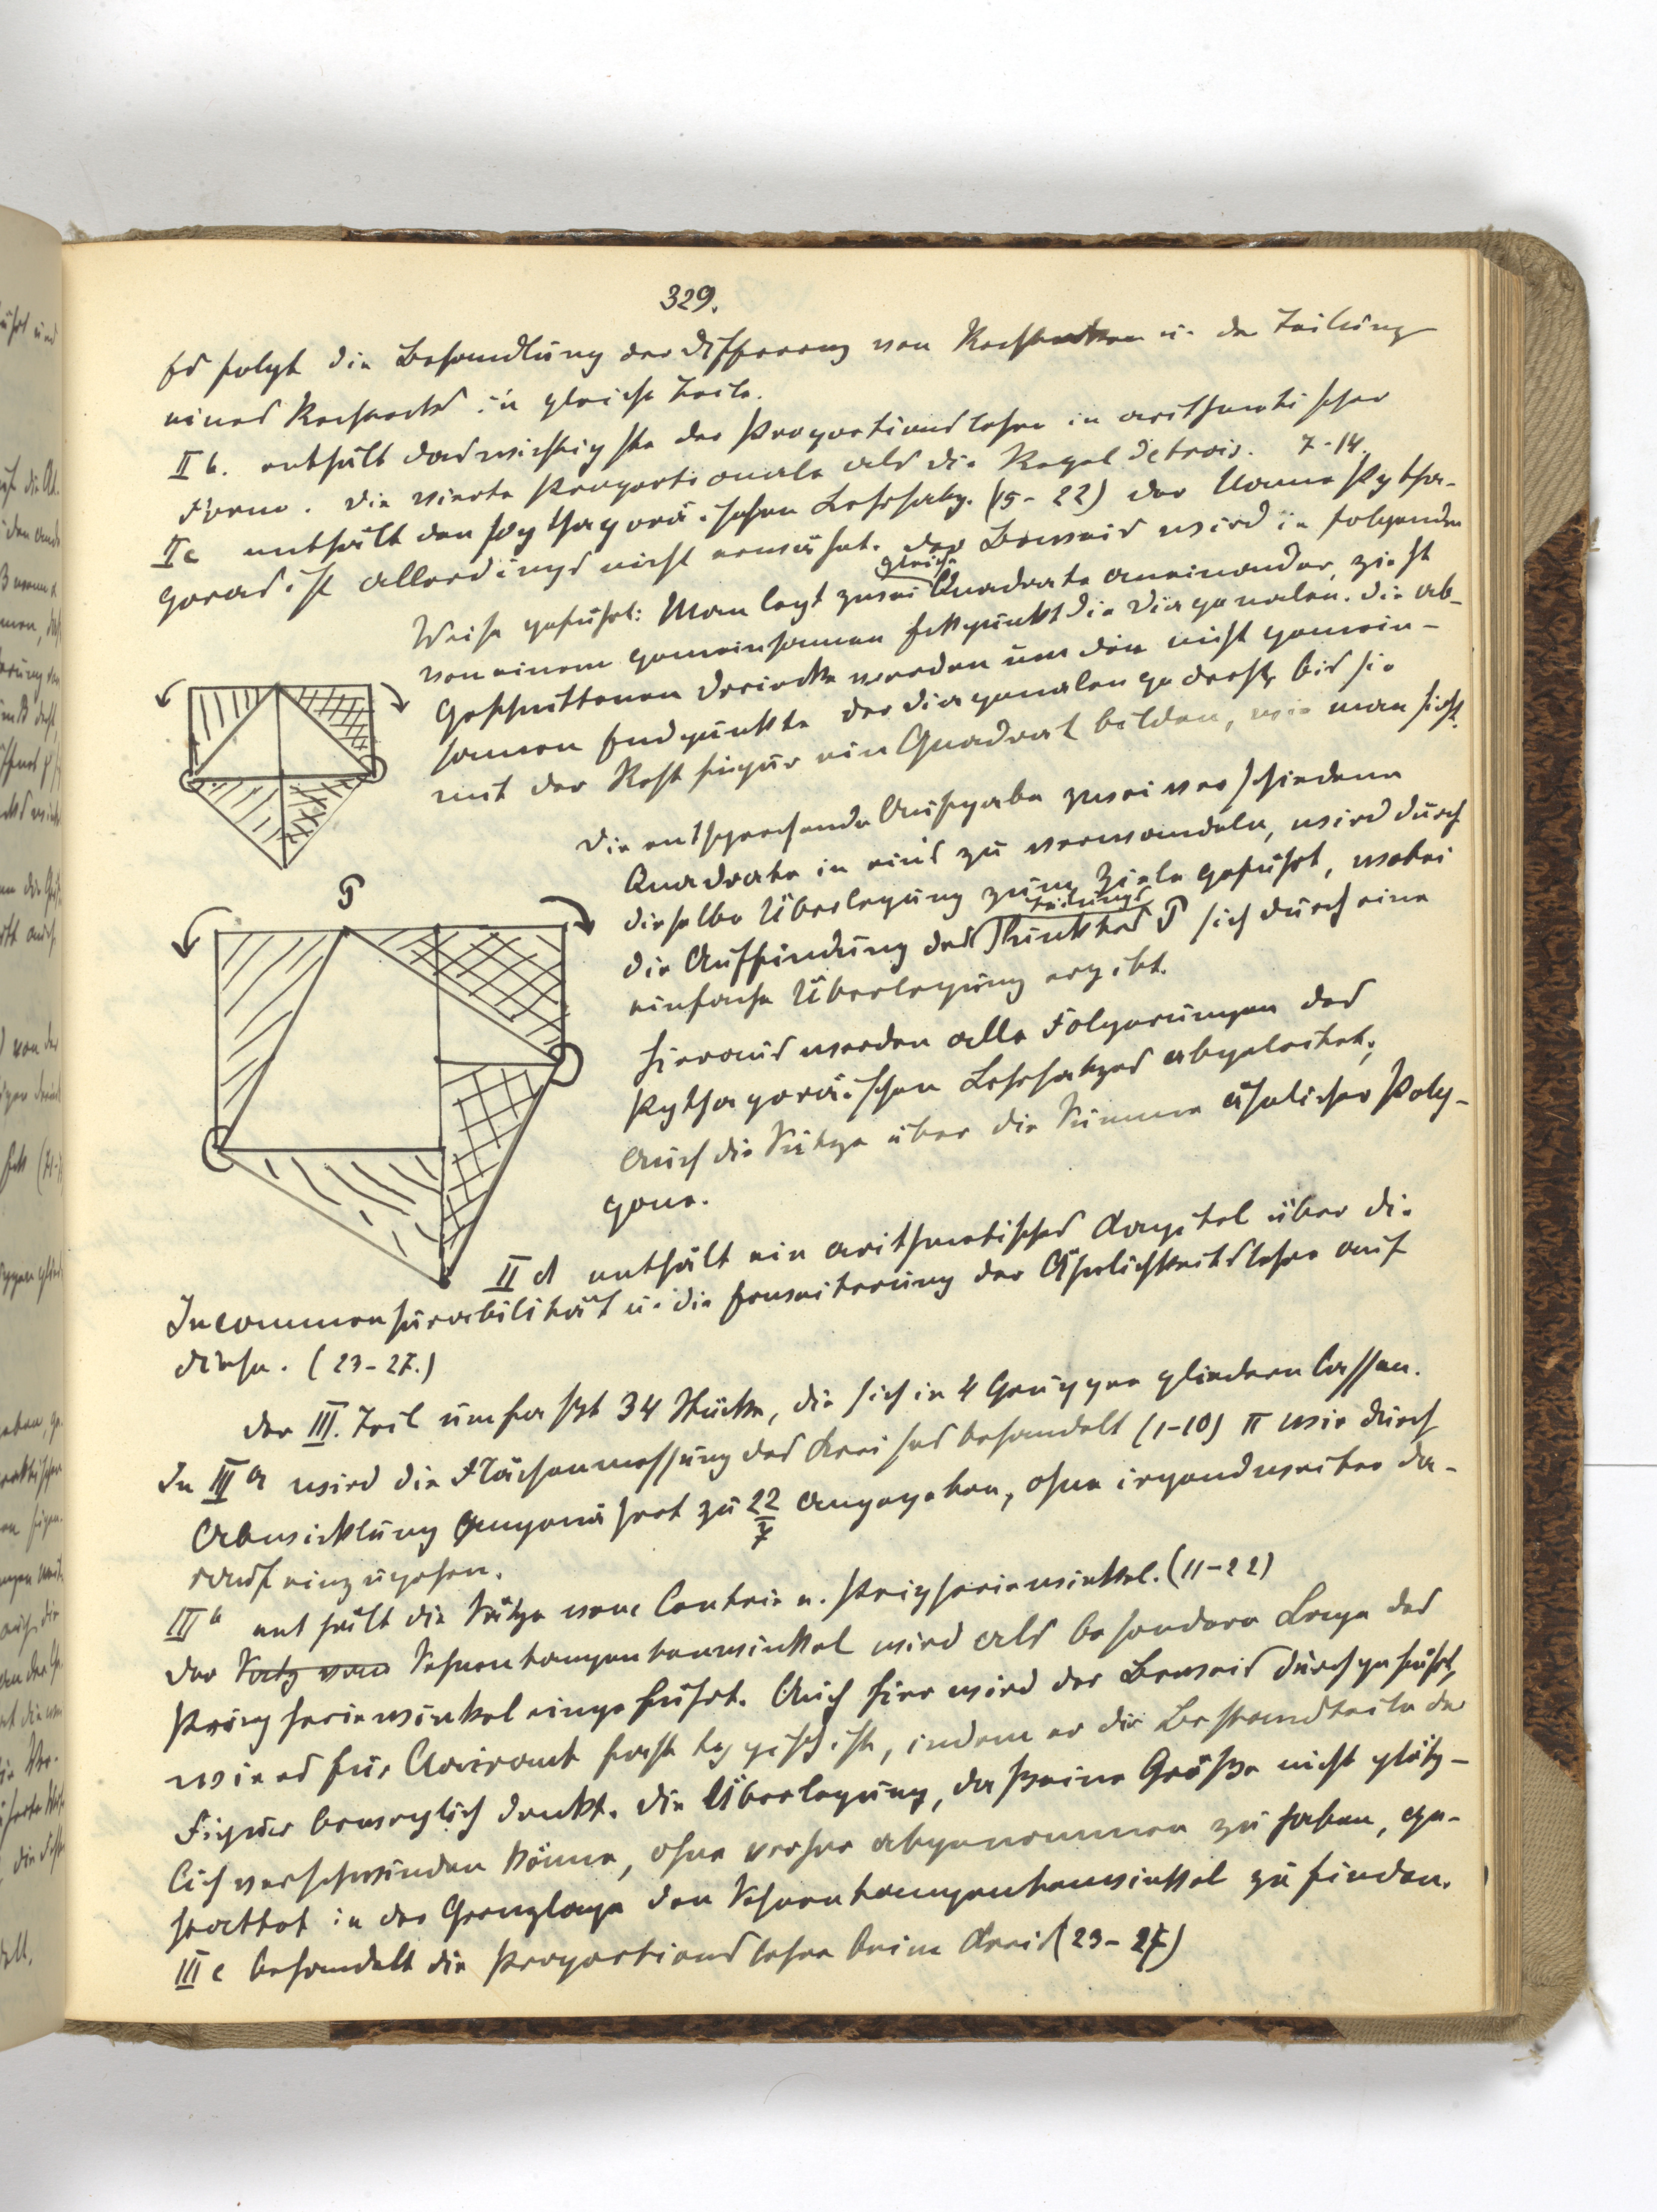 329.
Es folgt die Behandlung der Differenz von Rechtecken u. der Teilung
eines Rechtecks in gleiche Teile.
II b. enthält das wichtigste der Proportionslehre in arithmetischer
Form. Die vierte Proportionale als die Regel detrois. 7-14.
II c enthält den pythagoräischen Lehrsatz. (15-22) Der Name Pytha-
goras ist allerdings nicht erwähnt. Der Beweis wird in folgender
Weise geführt: Man legt zwei gleiche Quadrate aneinander, zieht
von einem gemeinsamen Eckpunkt die Diagonalen. Die ab-
geschnittenen Dreiecke werden um den nicht gemein-
samen Endpunkte der Diagonalen gedreht, bis sie
mit der Restfigur ein Quadrat bilden, wie man sieht.
Die entsprechende Aufgabe zwei verschiedene
Quadrate in eins zu verwandeln, wird durch
dieselbe Überlegung zum Ziele geführt, wobei
die Auffindung des Teilungs Punktes P sich durch eine
einfache Überlegung ergibt.
P
Hieraus werden alle Folgerungen des
Pythagoräischen Lehrsatzes abgeleitet;
auch die Sätze über die Summe ähnlicher Poly-
gone.
II d enthält ein arithmetisches Kapitel über die
Incommensurabilität u. die Erweiterung der Ähnlichkeitslehre auf
diese. (23-27.)
Der III. Teil umfasst 34 Stücke, die sich in 4 Gruppen gliedern lassen.
In III a wird die Flächenmessung des Kreises behandelt (1-10) π wie durch
Abwicklung angenähert zu 22/7 angegeben, ohne irgendweiter da-
rauf einzugehen.
III b enthält die Sätze vom Centrie u. Peripheriewinkel. (11-22)
Der Satz vom Sehnentangentenwinkel wird als besondere Lage des
Peripheriewinkel eingeführt. Auch hier wird der Beweis durchgeführt,
wie es für Clairaut fast typisch ist, indem er die Bestandteile der
Figur beweglich denkt. Die Überlegung, dass eine Größe nicht plötz-
lich verschwinden könne, ohne vorher abgenommen zu haben, ge-
stattet in der Grenzlage den Sehnentangentenwinkel zu finden.
III c behandelt die Proportionslehre beim Kreis (23-27)